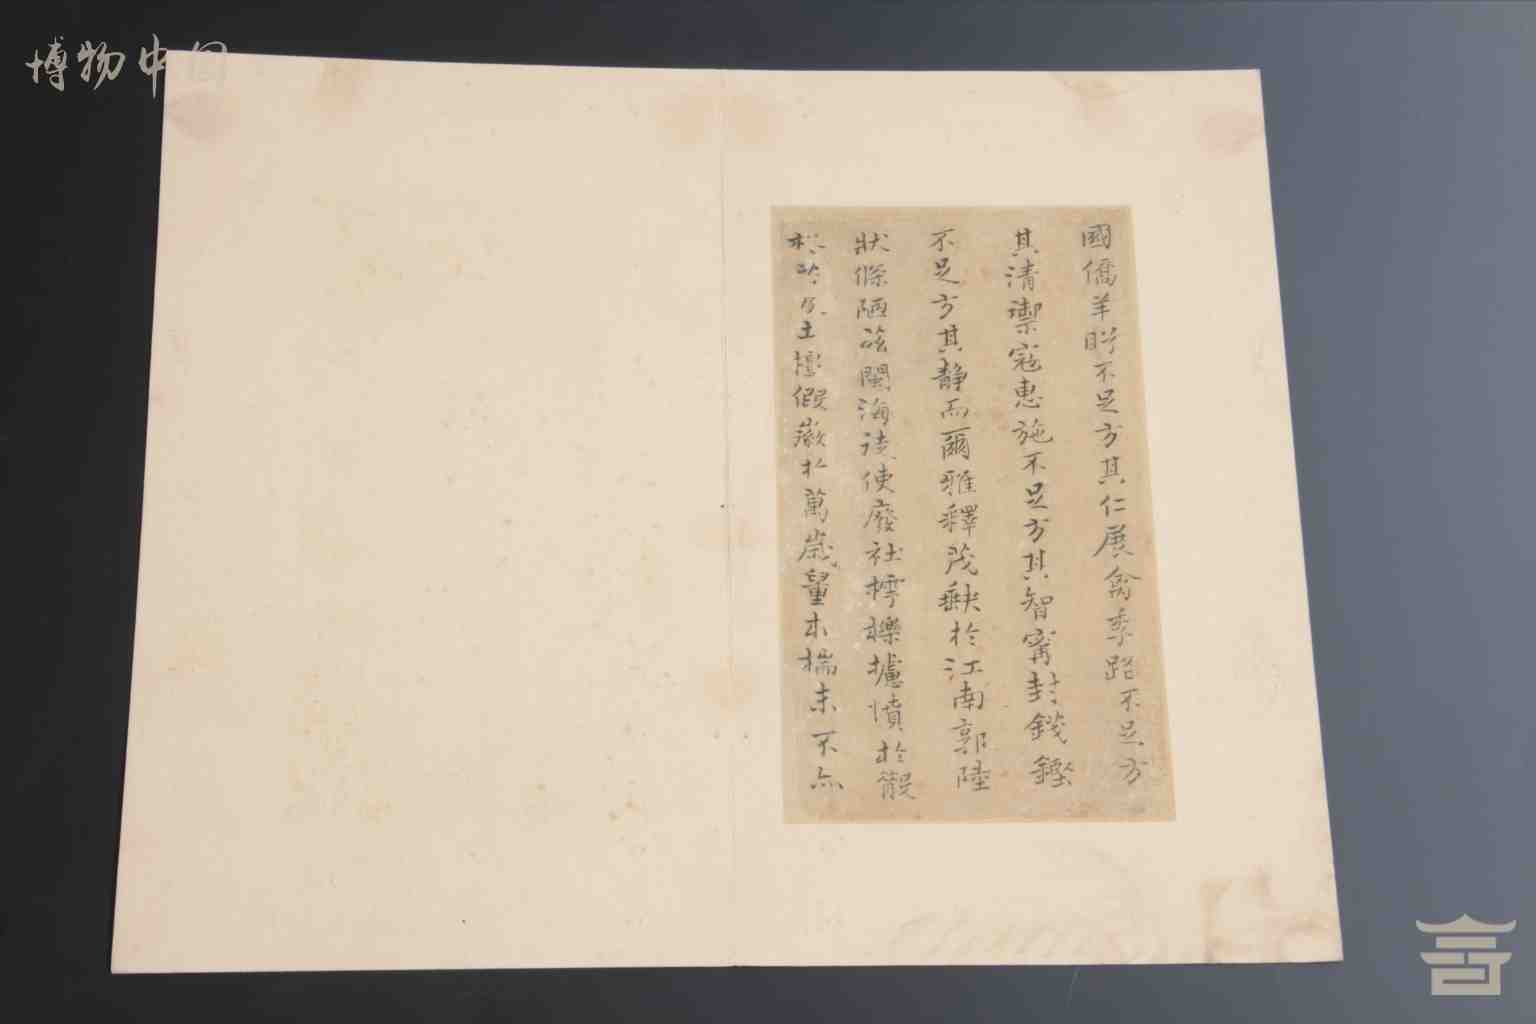 博物中国
國僑羊盻不足方其仁展禽季路不足方
其清禦寇惠施不足方其智甯封錢鏗
不足方其靜而爾雅釋茂缺於江南郭陸
狀僁陋茲閩海使廢社樗櫟攄憤於
土檀假嶶於萬歲本揣末不亦